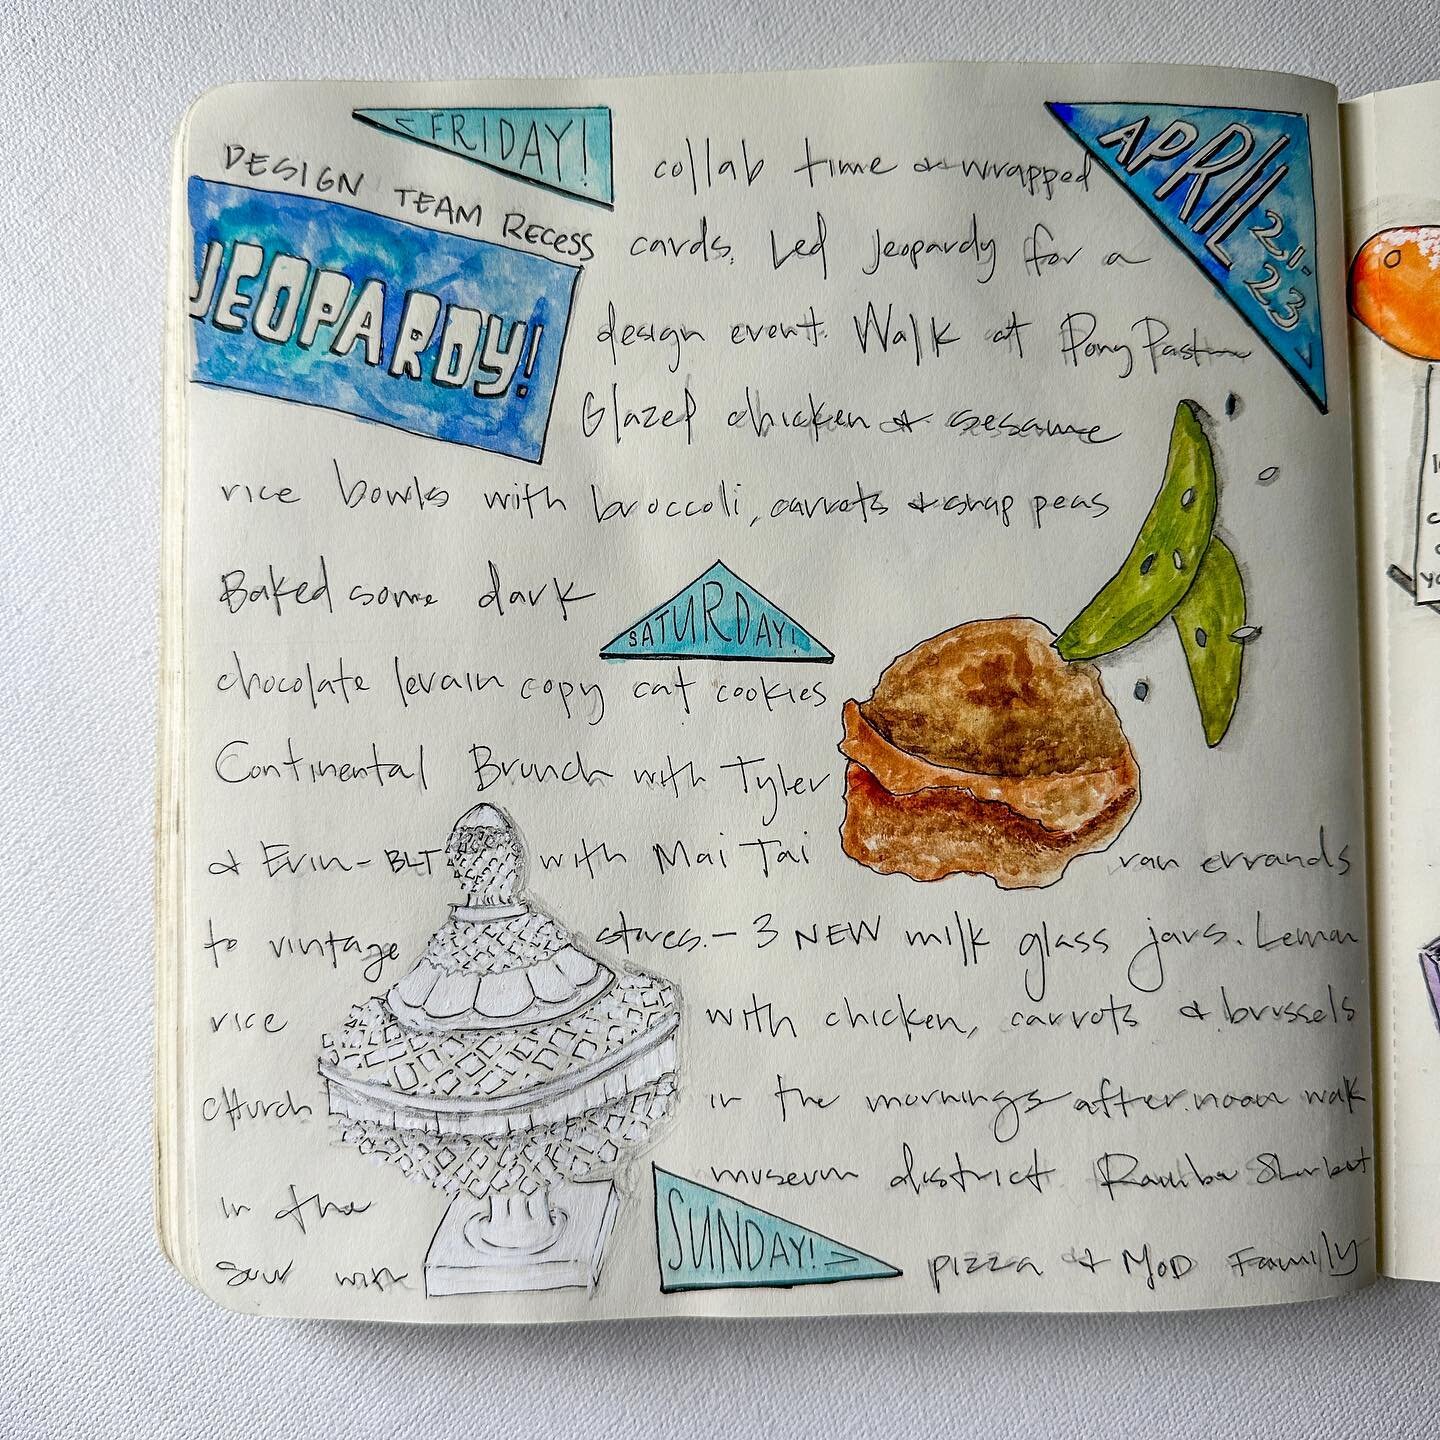 < FRIDAY!
DESIGN TEAM RECESS
JEOPARDY!
APRIL 21-23
collab time & wrapped
cards. Led Jeopardy for a
design event. Walk at Pony Pasture
Glazed chicken & sesame
rice bowls with broccoli, carrots & snap peas
Baked some dark
SATURDAY!
chocolate levain copy cat cookies
Continental Brunch with Tyler
& Erin - BLT with Mai Tai ran errands
to vintage stores. - 3 NEW milk glass jars. Lemon
rice with chicken, carrots & brussels
church in the mornings afternoon walk
in the museum district
SUNDAY! >
pizza & MOD Family